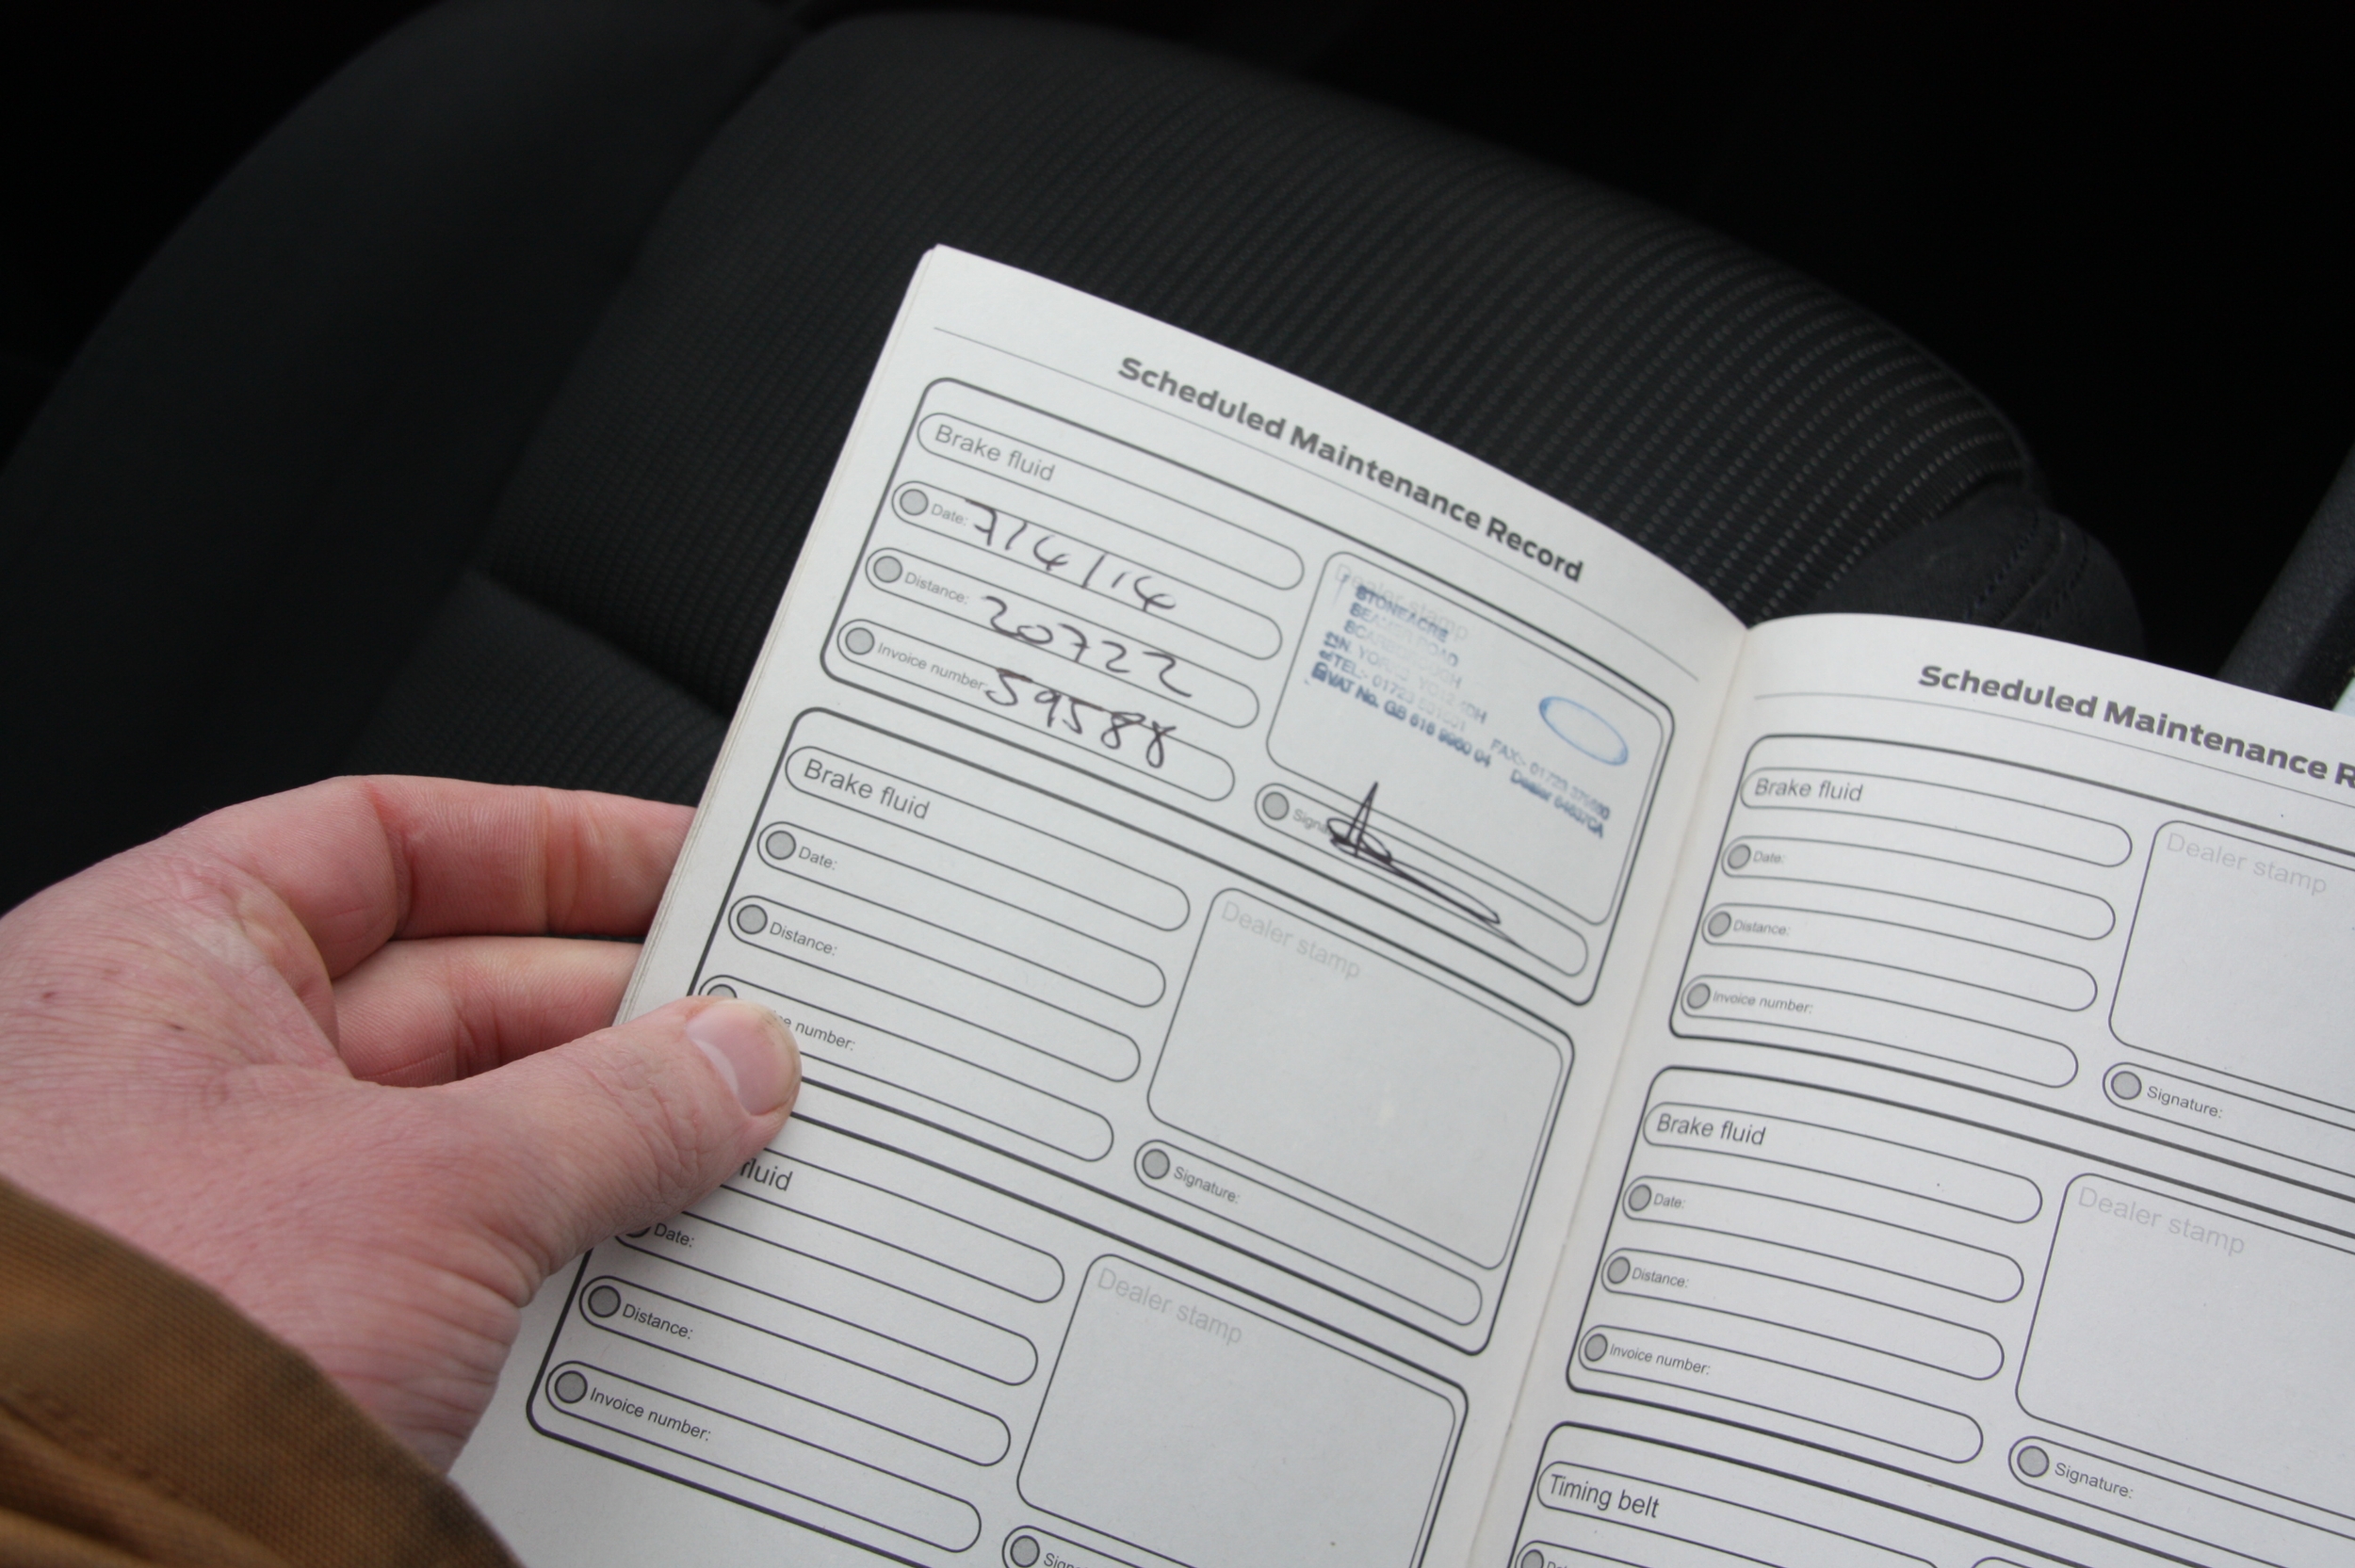 Scheduled Maintenance Record
Brake fluid
Date: 7/4/14
Distance: 20722
Invoice number: 59588
Dealer stamp
STONEACRE
ROAD
SCARBOROUGH
N. YORKS. YO12
TEL:- 01723 FAX:- 01723
VAT No. GB 616 04 Dealer
Signa
Brake fluid
Date:
Distance:
ice number:
Dealer stamp
Signature:
fluid
Date:
Distance:
Invoice number:
Dealer stamp
Sign
Scheduled Maintenance R
Brake fluid
Date:
Distance:
Invoice number:
Dealer stamp
Signature:
Brake fluid
Date:
Distance:
Invoice number:
Dealer stamp
Signature:
Timing belt